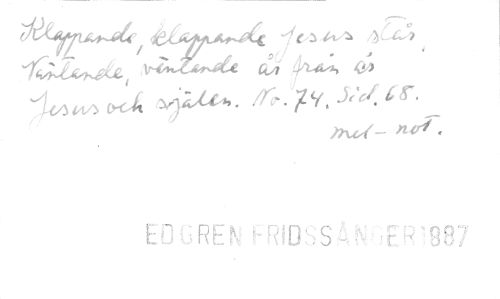 Klappande, klappande Jesus står,
Väntande, väntande år från år
Jesus och själen. No. 74. Sid. 68.
mel-not.
EDGREN FRIDSSÅNGER 1887